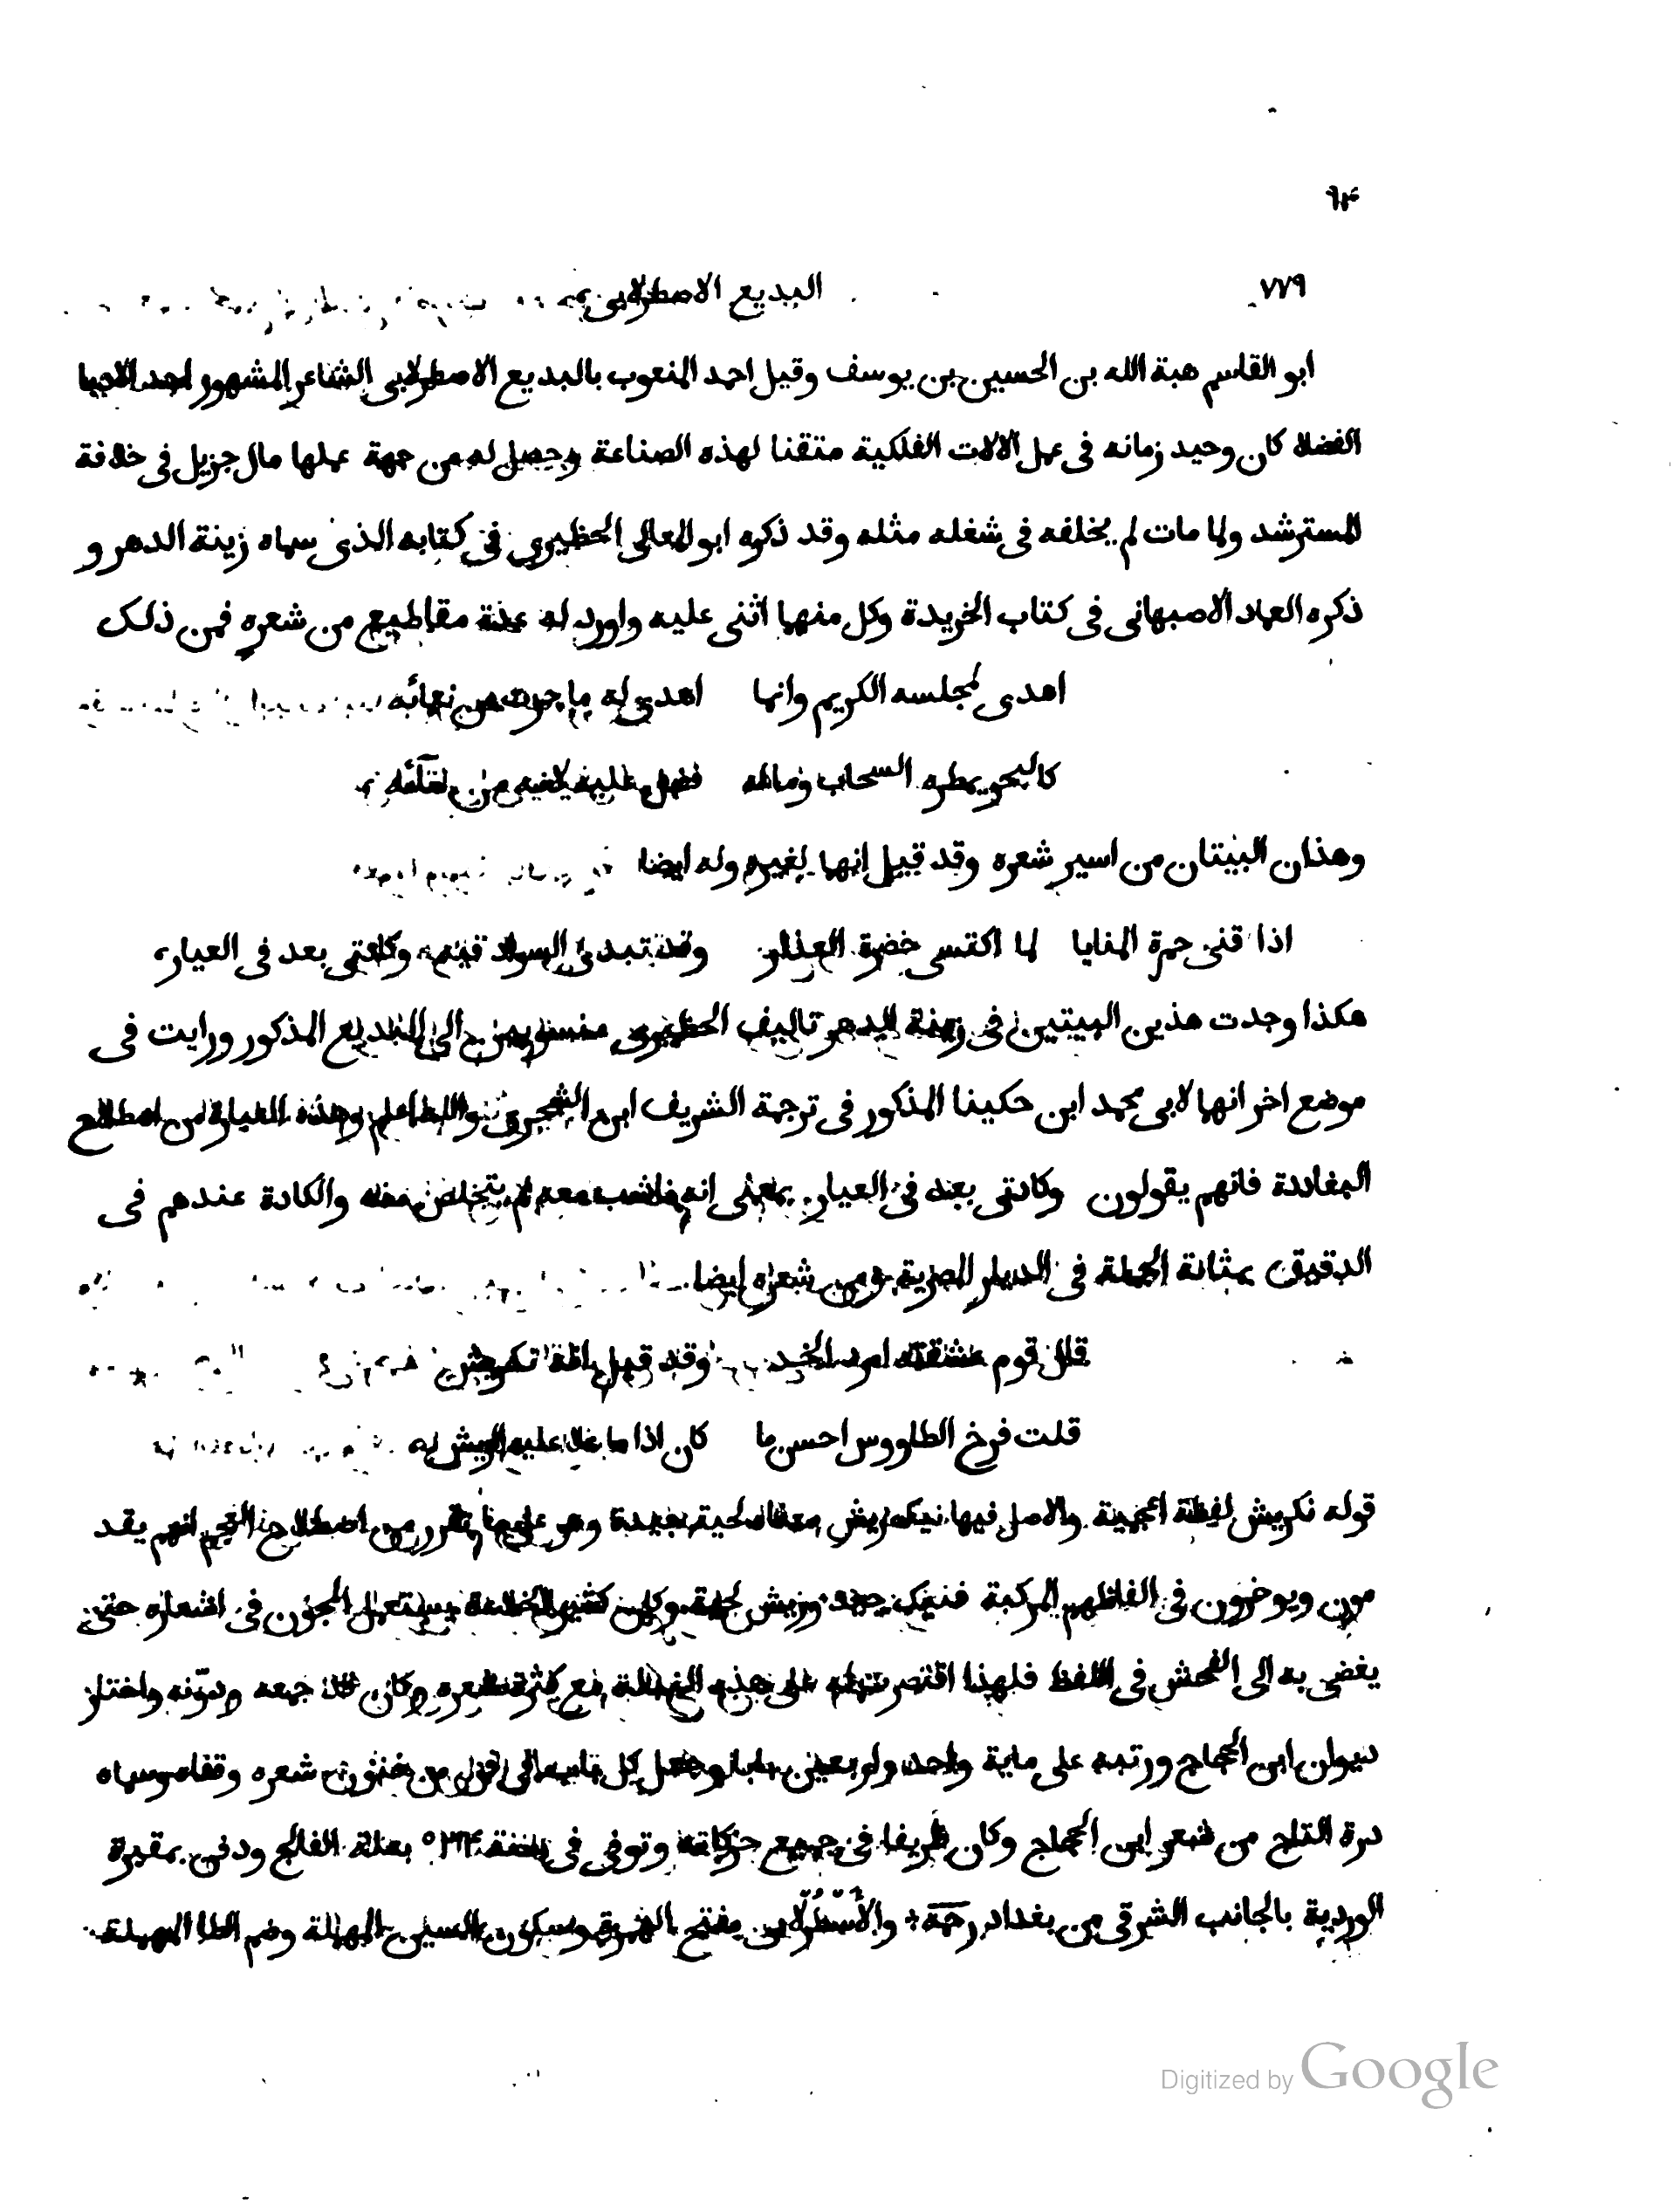 ٩٣
٧٧٩ البديع الاصطرلابى
ابو القاسم هبة الله بن الحسين بن يوسف وقيل احمد المنعوب بالبديع الاصطرلابى الشاعر المشهور احد الادبا
الفضلا كان وحيد زمانه فى عمل الالات الفلكية متقنا لهذه الصناعة وحصل له من جهة عملها مال جزيل فى خلافة
المسترشد ولما مات لم يخلفه فى شغله مثله وقد ذكره ابو المعالى الحظيرى فى كتابه الذى سماه زينة الدهر و
ذكره العماد الاصبهانى فى كتاب الخريدة وكل منهما اثنى عليه واورد له عدة مقاطيع من شعره فمن ذلك
اهدى لمجلسه الكريم وانما اهدى له ما حزت من نعمائه
كالبحر يمطره السحاب وماله فضل عليه لانه من مآئه
وهذان البيتان من اسير شعره وقد قيل انهما لغيره وله ايضا
اذا قنى حمرة المنايا لما اكتسى خضرة العذار وقد تبدى السواد فيه وكادتى بعد فى العيار
هكذا وجدت هذين البيتين فى زينة الدهر تاليف الحظيرى منسوبين الى البديع المذكور ورايت فى
موضع اخر انهما لابى محمد ابن حكينا المذكور فى ترجمة الشريف ابن الشجرى والله اعلم وهذه العبارة من اصطلاح
البغاددة فانهم يقولون وكادتى بعد فى العيار بمعنى انه ناشب معه لم يتخلص منه والكادة عندهم فى
الدقيق بمثانة الجملة فى الديار المصرية ومن شعره ايضا
قال قوم عشقته امرد الخد وقد قيل انه نكريش
قلت فرخ الطاووس احسن ما كان اذا ما علا عليه الريش
قوله نكريش لفظة اعجمية والاصل فيها نيك ريش معناه لحية جيدة وهو على ما تقرر من اصطلاح العجم انهم يقد
مون ويوخرون فى الفاظهم المركبة فنيك جيد وريش لحية وكان كثير الخلاعة يستعمل المجون فى اشعاره حتى
يفضى به الى الفحش فى اللفظ فلهذا اقتصرت له على هذه النبذة مع كثرة شعره وكان قد جمعه ودوّنه واختار
ديوان ابن الحجاج ورتبه على ماية واحد واربعين بابا وجعل كل باب فى فن من فنون شعره وقفاه وسماه
درة التاج من شعر ابن الحجاج وكان ظريفا فى جميع حركاته وتوفى فى سنة ٥٣٤ بعلة الفالج ودفن بمقبرة
الوردية بالجانب الشرقى من بغداد رحمة والأَسْطُرْلاب بفتح الهمزة وسكون السين المهملة وضم الطا المهملة
Digitized by Google